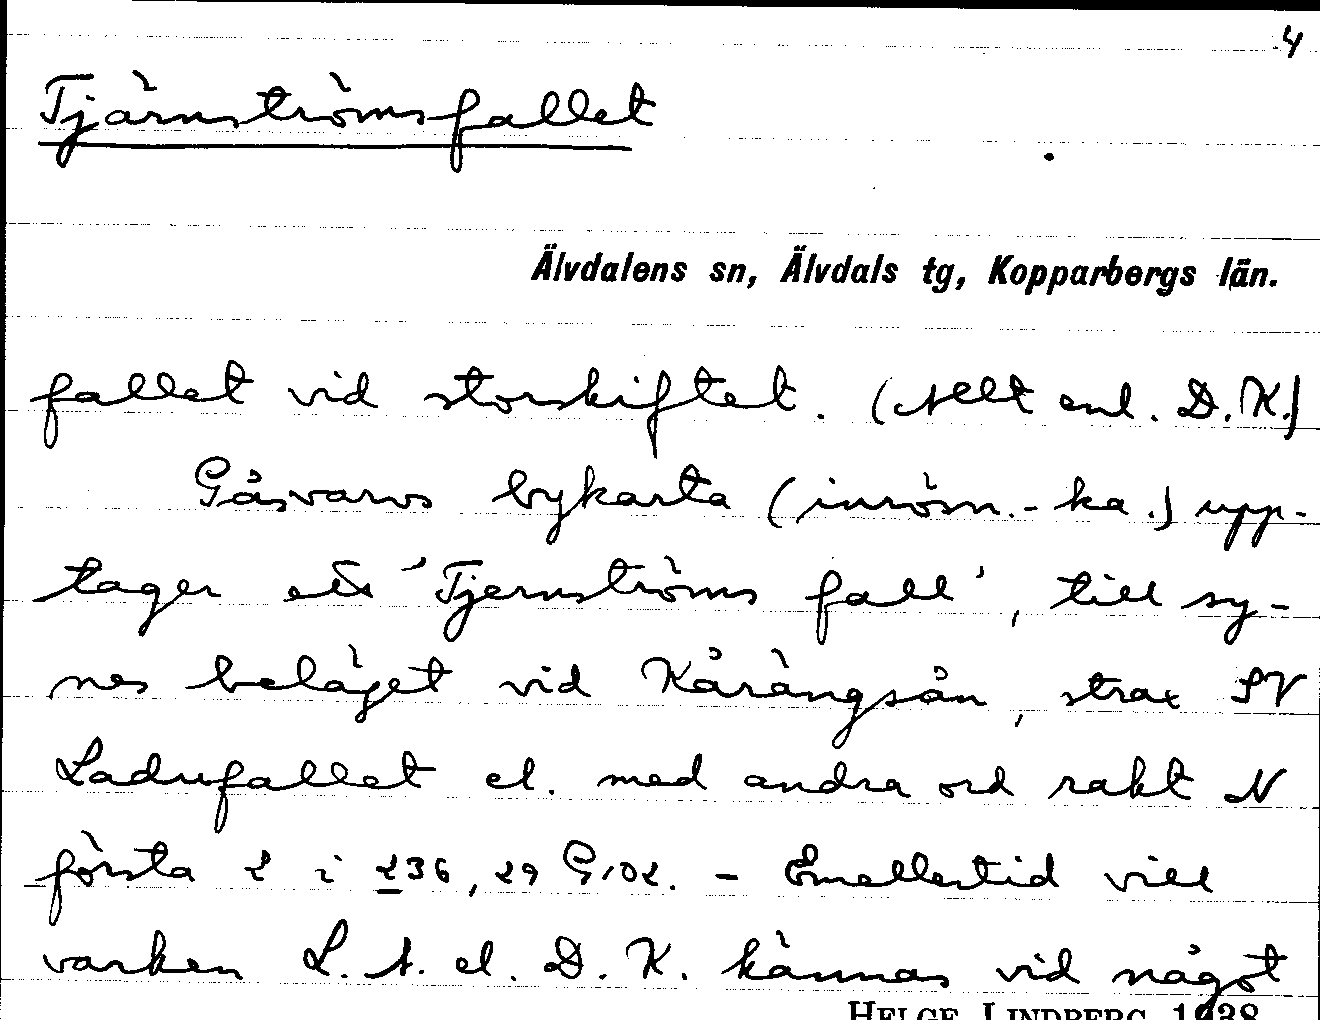 4
Tjärnströmsfallet
Älvdalens sn, Älvdals tg, Kopparbergs län.
fallet vid storskiftet. (Allt enl. D. K.)
Gåsvarvs bykarta (inrösn.-ka.) upp-
tager ett 'Tjernströms fall', till sy-
nes beläget vid Kårängsån, strax SV
Ladufallet el. med andra ord rakt N
första 2 i 236, 29 G102. - Emellertid vill
varken L. A. el. D. K. kännas vid något
HELGE LINDBERG 1938